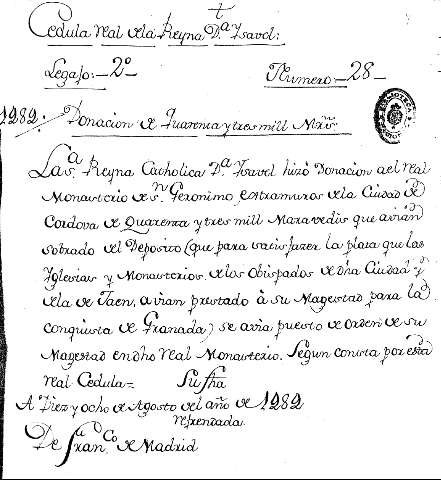 †
Cedula real dela Reyna D.ª Ysavel:
Legajo: 2º Numero: 28
1982: Donacion de Quarenta y tres mill Mrs.
La S.ª Reyna Catholica D.ª Ysavel hizo Donacion a el real
Monasterio de Sn. Geronimo, extramuros de la Ciudad de
Cordova de Quarenta y tres mill Maravedis que avian
sobrado del Deposito (que para satisfazer la plata que las
Yglesias y Monasterios, de los Obispados de dha Ciudad y
de la de Jaen, avian prestado à su Magestad para la
conquista de Granada) se avia puesto de orden de su
Magestad en dho real Monasterio. Segun consta por esta
real Cedula= Su fha
A Diez y ocho de Agosto del año de 1982
refrendada
De Franco. de Madrid